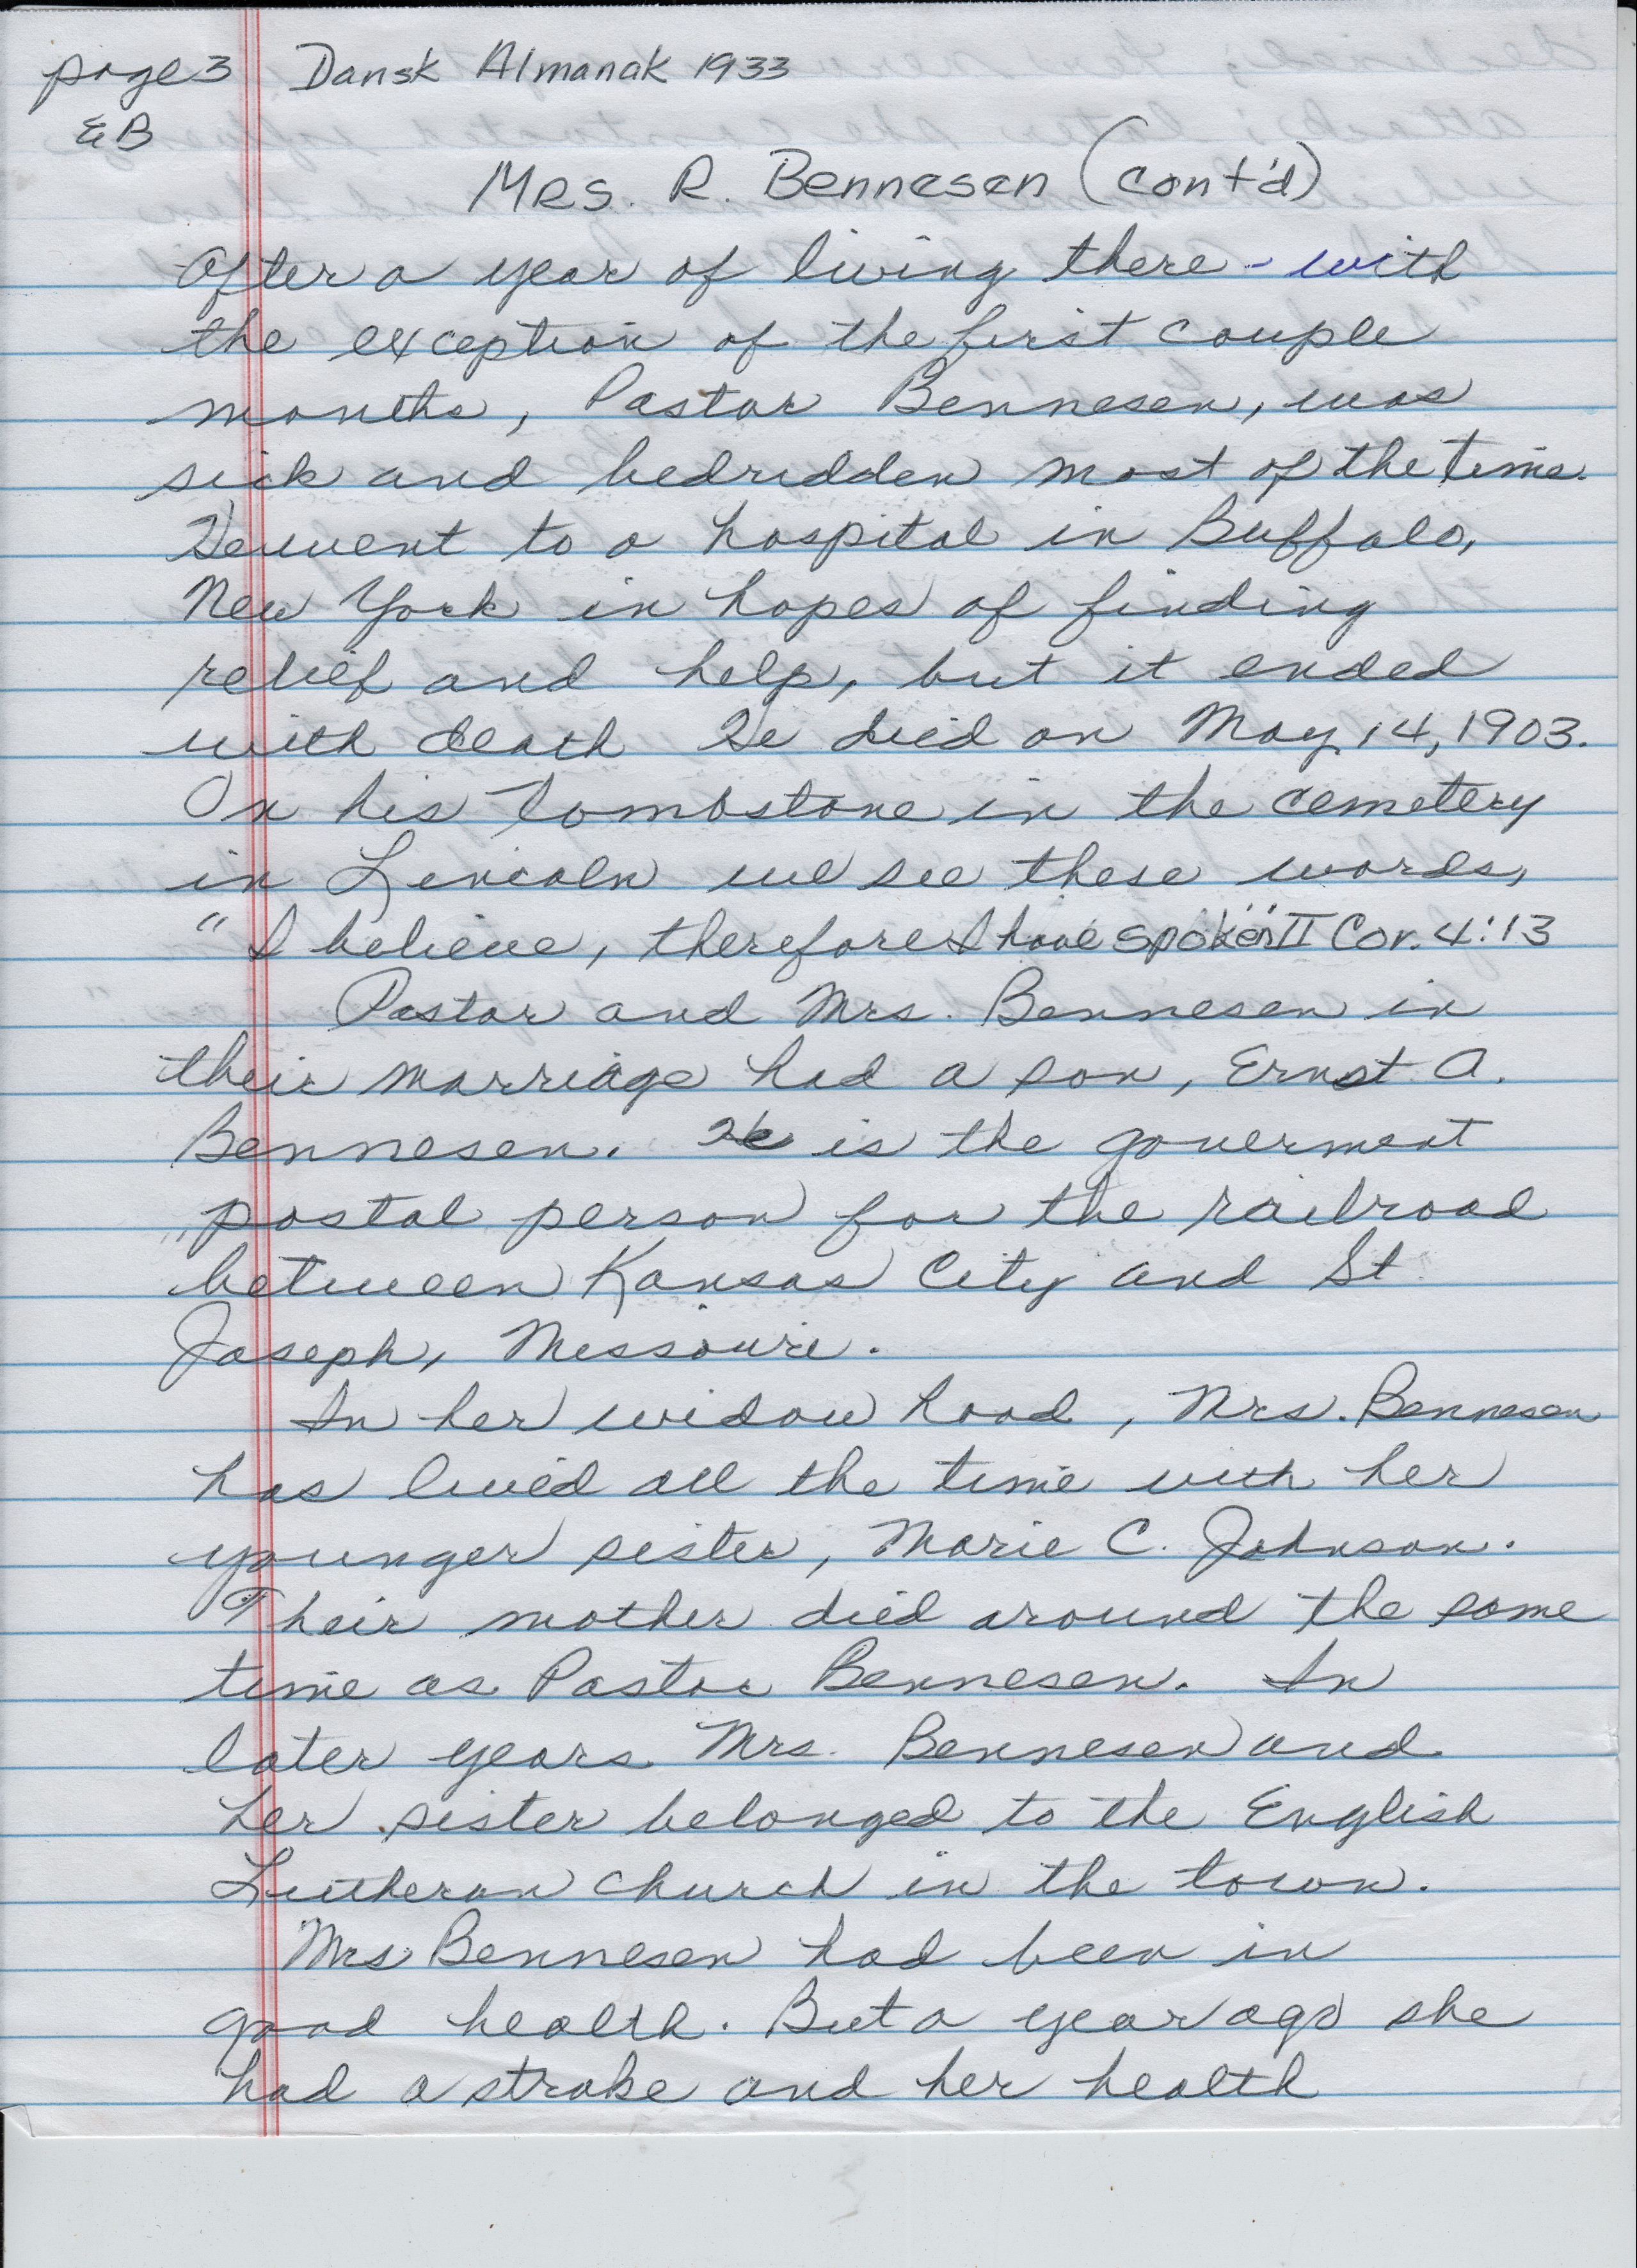 page 3 Dansk Almanak 1933
EB
Mrs. R. Bennesen (cont'd)
After a year of living there - with
the exception of the first couple
months, Pastor Bennesen, was
sick and bedridden most of the time.
He went to a hospital in Buffalo,
New York in hopes of finding
relief and help, but it ended
with death He died on May 14, 1903.
On his tombstone in the cemetery
in Lincoln we see these words,
"I believe, therefore I have spoken" II Cor. 4:13
Pastor and Mrs. Bennesen in
their marriage had a son, Ernst A.
Bennesen. He is the goverment
postal person for the railroad
between Kansas City and St.
Joseph, Missouri.
In her widow hood, Mrs. Bennesen
has lived all the time with her
younger sister, Marie C. Johnson.
Their mother died around the same
time as Pastor Bennesen. In
later years Mrs. Bennesen and
her sister belonged to the English
Lutheran church in the town.
Mrs Bennesen had been in
good health. But a year ago she
had a stroke and her health